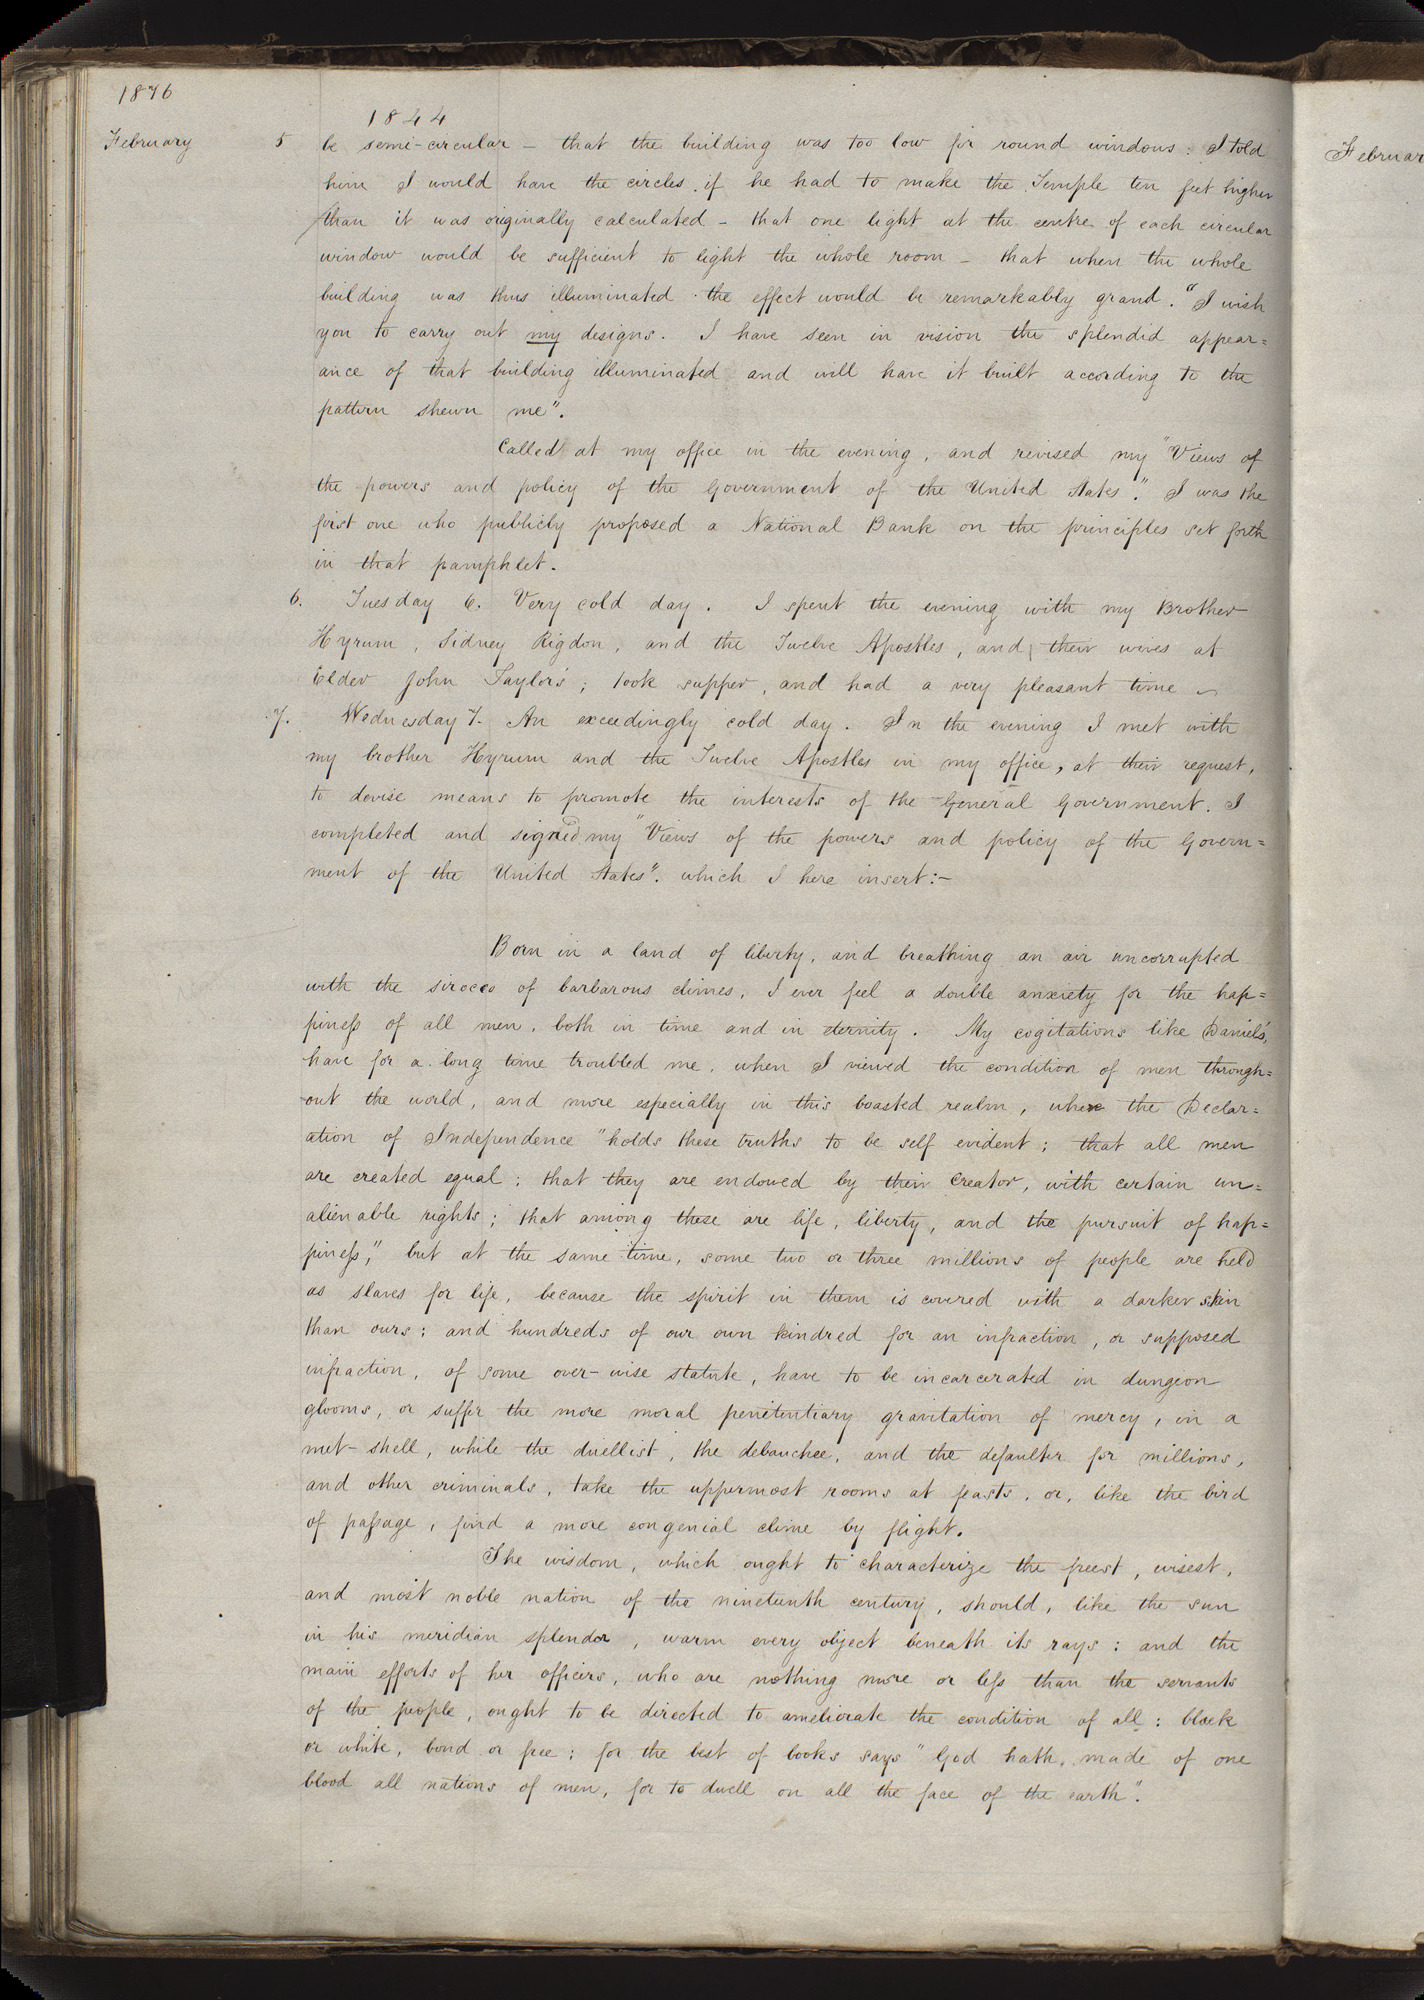 1876
1844
February 5 be semi-circular – that the building was too low for round windows: I told
him I would have the circles, if he had to make the Temple ten feet higher
than it was originally calculated – that one light at the centre of each circular
window would be sufficient to light the whole room – that when the whole
building was thus illuminated the effect would be remarkably grand. "I wish
you to carry out my designs. I have seen in vision the splendid appear=
ance of that building illuminated and will have it built according to the
pattern shewn me".
Called at my office in the evening, and revised my "Views of
the powers and policy of the Government of the United States." I was the
first one who publicly proposed a National Bank on the principles set forth
in that pamphlet.
6. Tuesday 6. Very cold day. I spent the evening with my Brother
Hyrum, Sidney Rigdon, and the Twelve Apostles, and their wives at
Elder John Taylor's; took supper, and had a very pleasant time
7. Wednesday 7. An exceedingly cold day. In the evening I met with
my brother Hyrum and the Twelve Apostles in my office, at their request,
to devise means to promote the interests of the General Government. I
completed and signed my "Views of the powers and policy of the Govern=
ment of the United States". which I here insert:–
Born in a land of liberty, and breathing an air uncorrupted
with the sirocco of barbarous climes, I ever feel a double anxiety for the hap=
piness of all men, both in time and in eternity. My cogitations like Daniel's,
have for a long time troubled me, when I viewed the condition of men through=
out the world, and more especially in this boasted realm, where the Declar=
ation of Independence "holds these truths to be self evident; that all men
are created equal; that they are endowed by their Creator, with certain un=
alienable rights; that among these are life, liberty, and the pursuit of hap=
piness," but at the same time, some two or three millions of people are held
as slaves for life, because the spirit in them is covered with a darker skin
than ours; and hundreds of our own kindred for an infraction, or supposed
infraction, of some over-wise statute, have to be incarcerated in dungeon
glooms, or suffer the more moral penitentiary gravitation of mercy, in a
nut-shell, while the duellist, the debauchee, and the defaulter for millions,
and other criminals, take the uppermost rooms at feasts, or, like the bird
of passage, find a more congenial clime by flight.
The wisdom, which ought to characterize the freest, wisest,
and most noble nation of the nineteenth century, should, like the sun
in his meridian splendor, warm every object beneath its rays: and the
main efforts of her officers, who are nothing more or less than the servants
of the people, ought to be directed to ameliorate the condition of all: black
or white, bond or free; for the best of books says "God hath made of one
blood all nations of men, for to dwell on all the face of the earth".
Februar